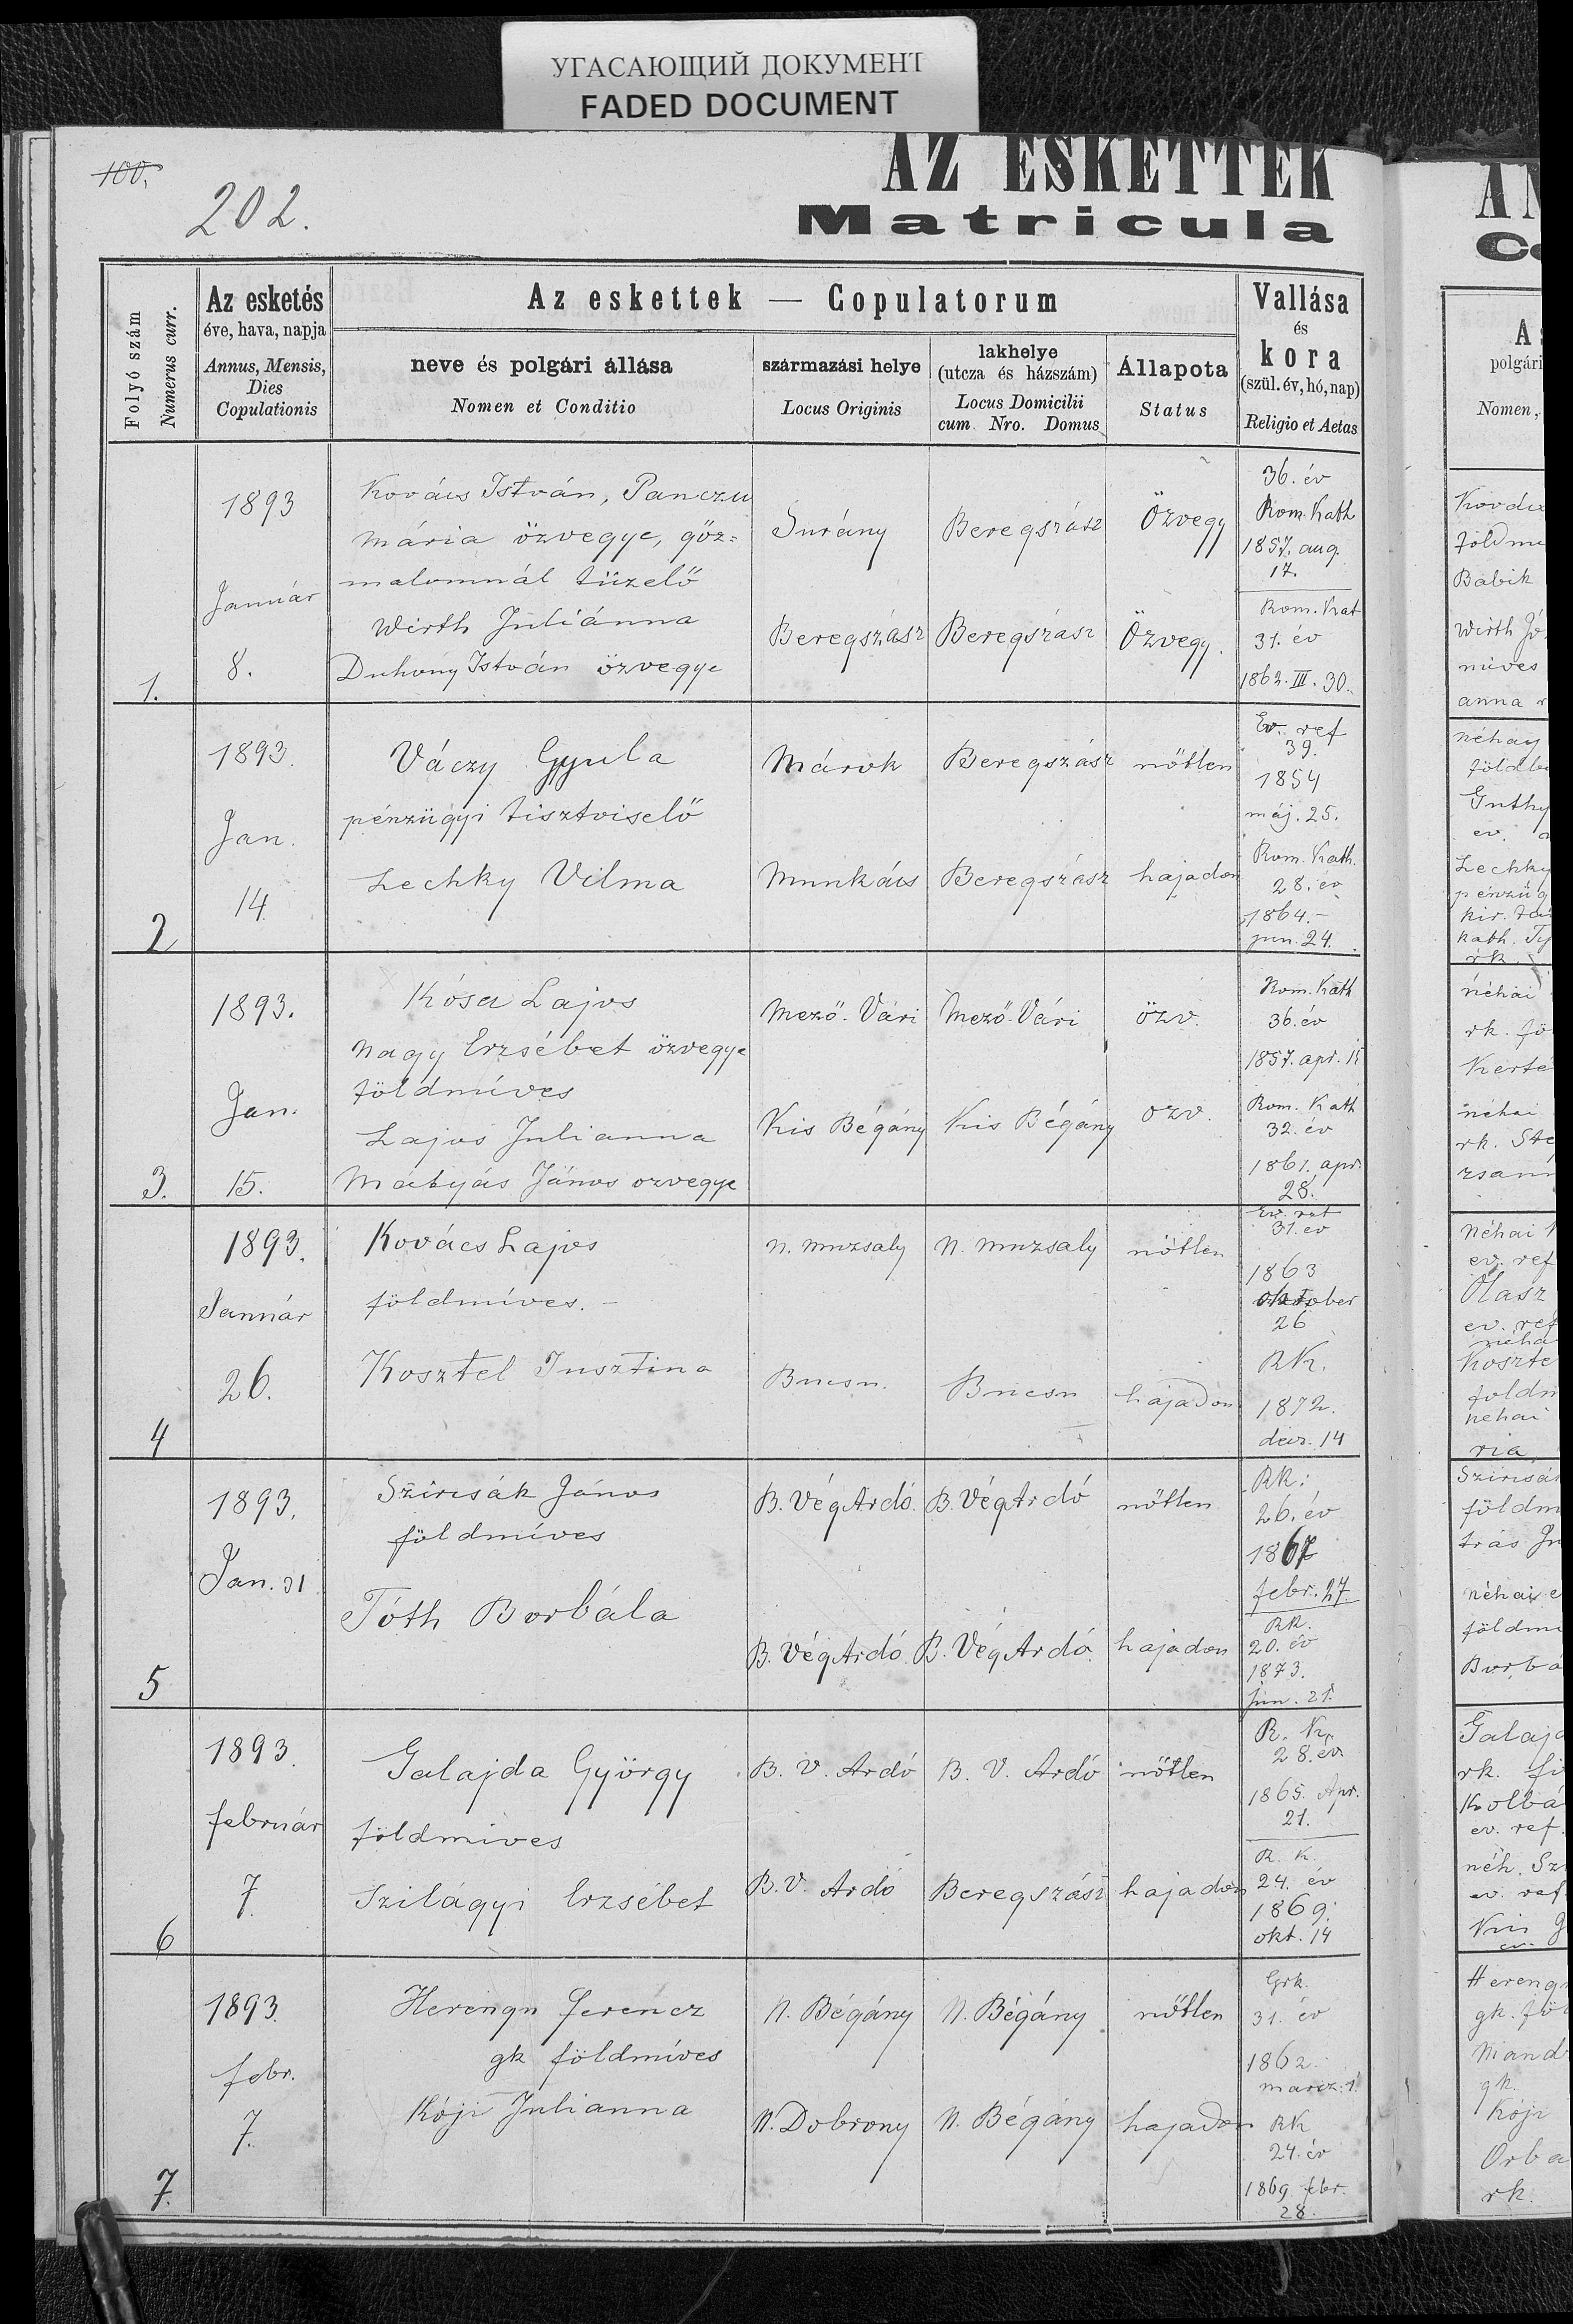 УГАСАЮЩИЙ ДОКУМЕНТ
FADED DOCUMENT
100.
202.
AZ ESKETTEK
Matricula
Folyó szám
Numerus curr.
Az esketés
éve, hava, napja
Annus, Mensis,
Dies
Copulationis
Az eskettek — Copulatorum
neve és polgári állása
Nomen et Conditio
származási helye
Locus Originis
lakhelye
(utcza és házszám)
Locus Domicilii
cum Nro. Domus
Állapota
Status
Vallása
és
kora
(szül. év, hó, nap)
Religio et Aetas
1.
1893
Január
8.
Kovács István, Panczu
Mária özvegye, gőz=
malomnál tüzelő
Surány
Beregszász
Özvegy
36. év
Rom. Kath
1857. aug.
17.
Wirth Juliánna
Duhony István özvegye
Beregszász
Beregszász
Özvegy.
Rom. Kat
31. év
1862. III. 30.
2
1893.
Jan.
14
Váczy Gyula
pénzügyi tisztviselő
Márok
Beregszász
nőtlen
Ev. ref
39.
1854
máj. 25.
Lechky Vilma
Munkács
Beregszász
hajadon
Rom. Kath.
28. év
1864.-
jun. 24.
3.
1893.
Jan.
15.
Kósa Lajos
Nagy Erzsébet özvegye
földmíves
Mező-Vári
Mező-Vári
özv.
Rom. Kath
36. év
1857. apr. 15
Lajos Julianna
Mátyás János özvegye
Kis Bégány
Kis Bégány
özv.
Rom. Kath
32. év
1861. apr.
28.
4
1893.
Január
26.
Kovács Lajos
földmíves.-
N. Muzsaly
N. Muzsaly
nőtlen
Ev. ref
31. év
1863
oktober
26
Kosztel Jusztina
Bucsu.
Bucsu
hajadon
RK.
1872.
decz. 14
5
1893.
Jan. 31
Szircsák János
földmíves
B. VégArdó.
B. VégArdó
nőtlen
RK.
26. év
1867
febr. 27.
Tóth Borbála
B. VégArdó.
B. VégArdó.
hajadon
RK.
20. év
1873.
jun. 21.
6
1893.
február
7
Galajda György
földmíves
B. V. Ardó
B. V. Ardó
nőtlen
R. K.
28. év.
1865. Apr.
21.
Szilágyi Erzsébet
B. V. Ardó
Beregszász
hajadon
R. K.
24. év
1869.
okt. 14
7.
1893.
febr.
7.
Herengu Ferencz
gk földmíves
N. Bégány
N. Bégány
nőtlen
Grk.
31. év
1862.
marcz. 1.
Kóji Julianna
N. Dobrony
N. Bégány
hajadon
RK
24. év
1869 febr.
28.
polgári
Nomen,
néhai
rk. fö
néhai
ev. ref
rk.